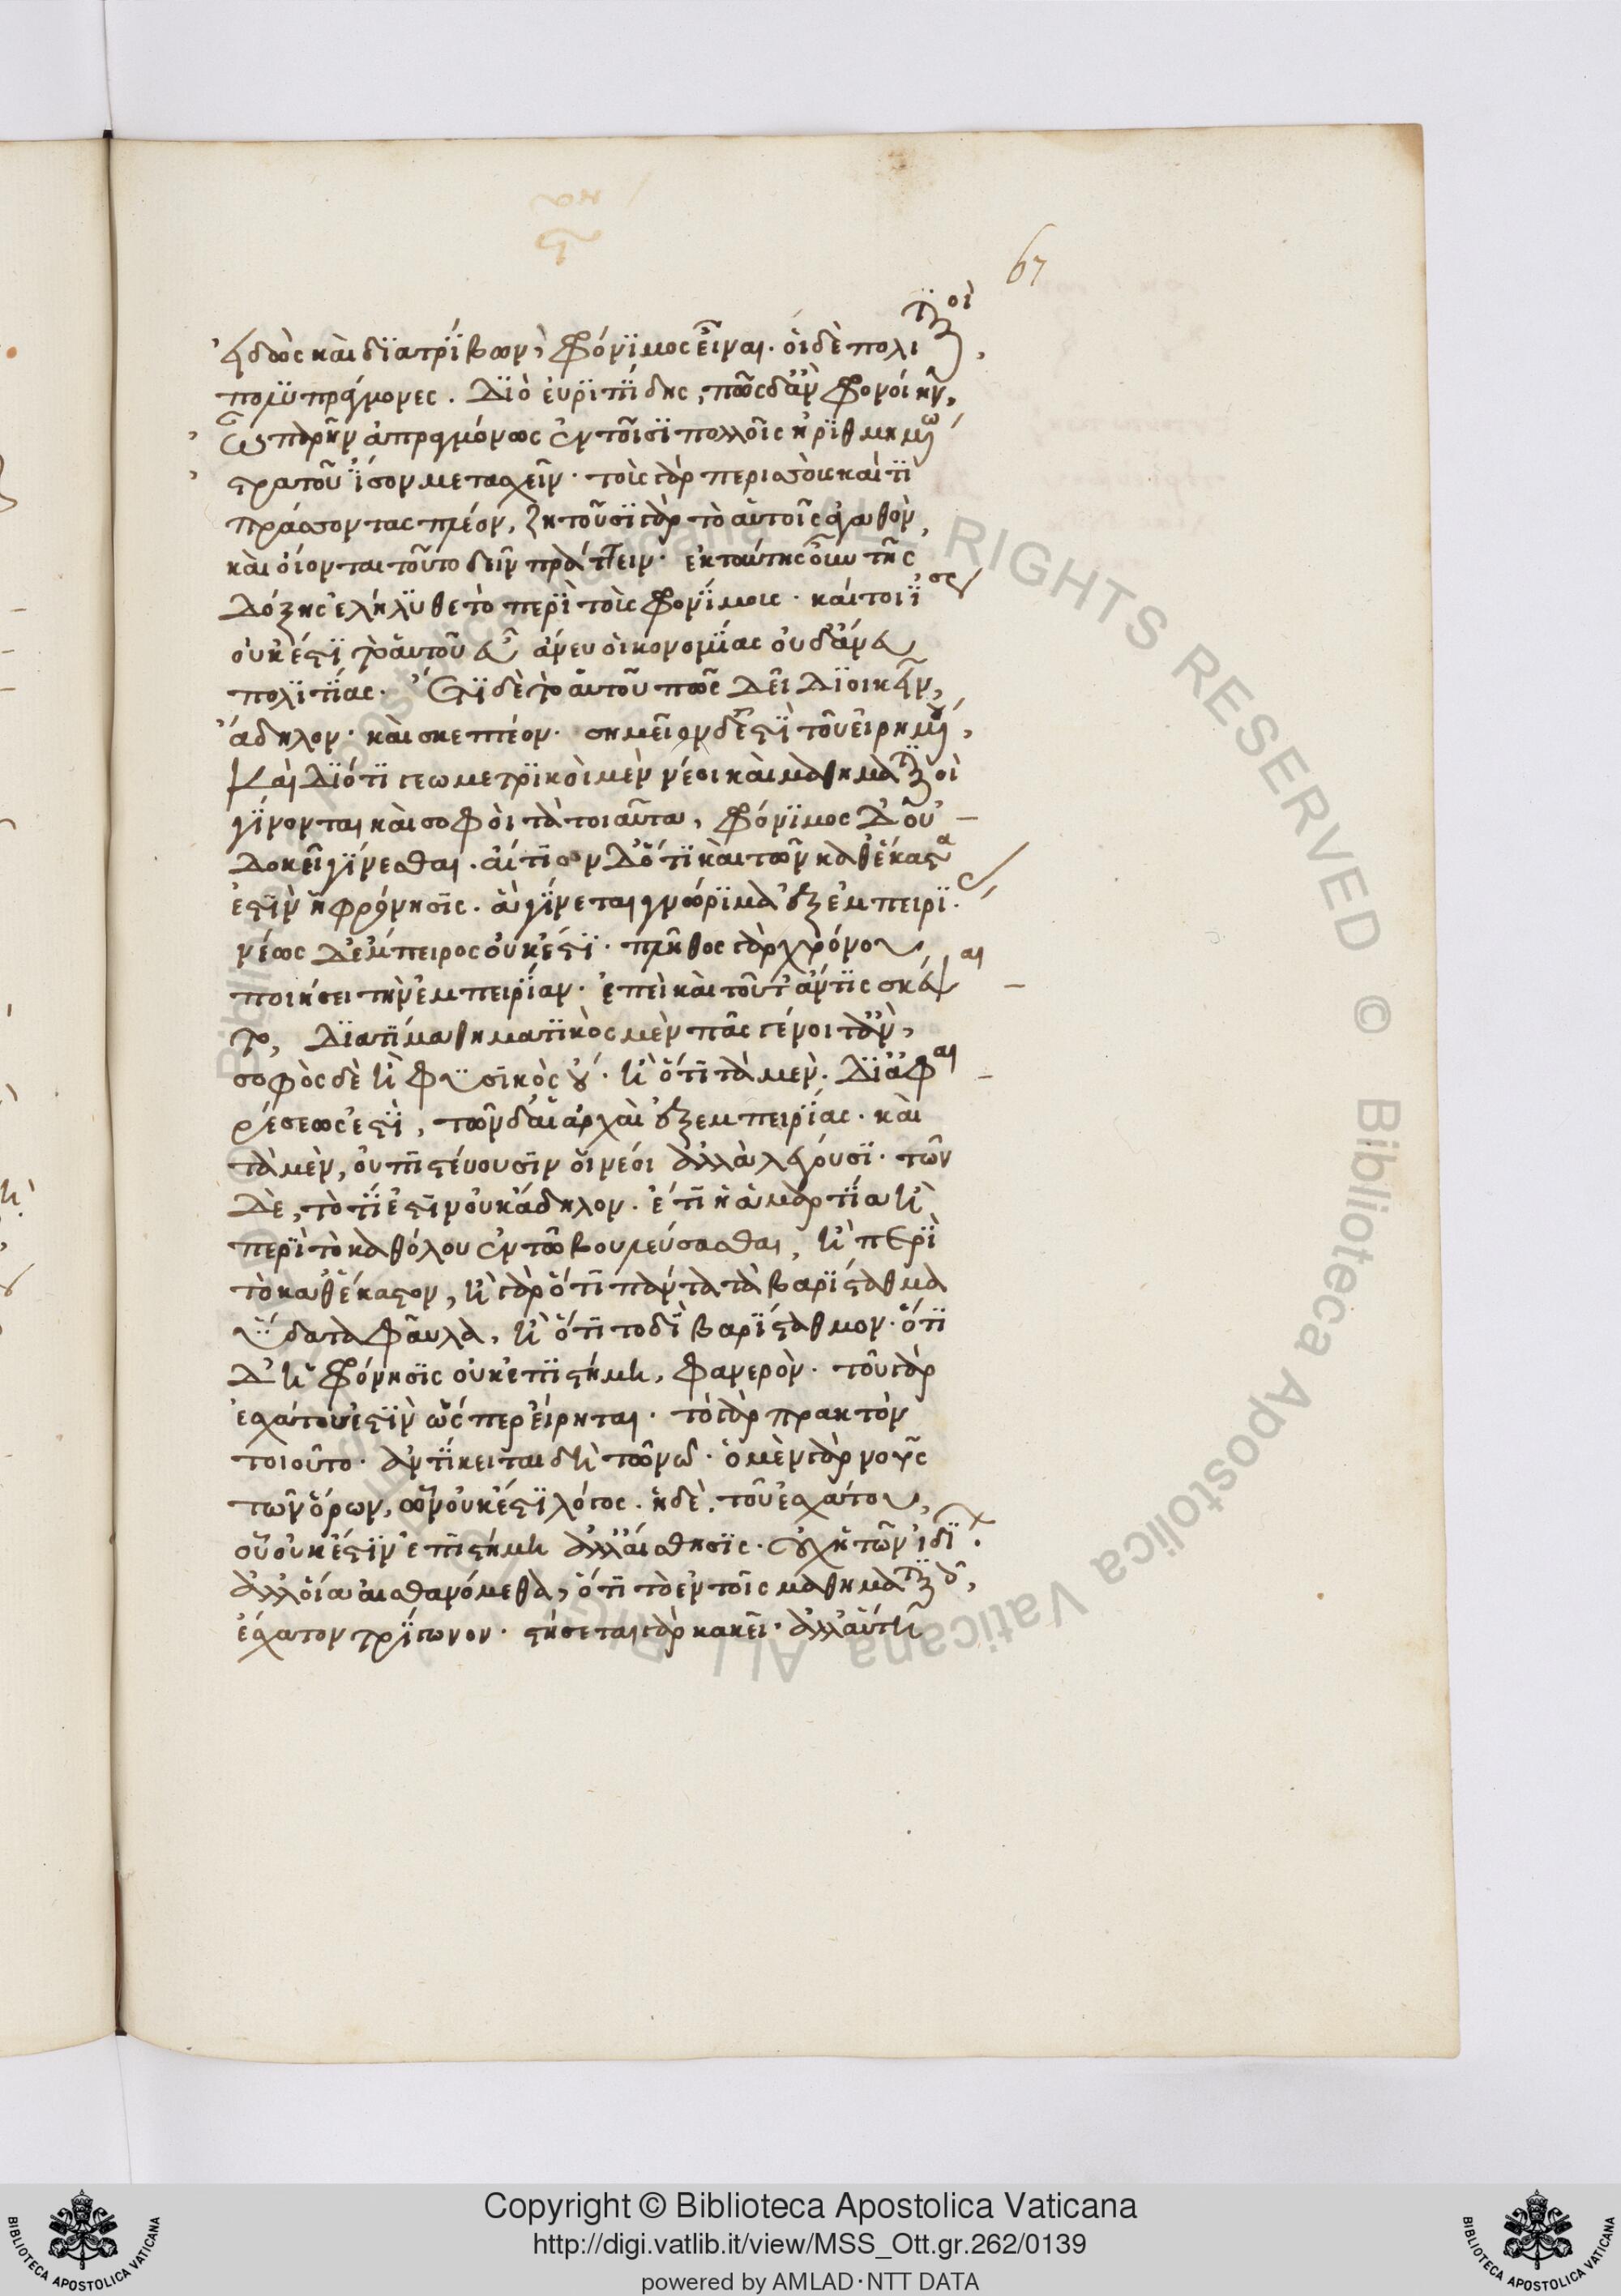 67
εἰδὼς καὶ διατρίβων, φρόνιμος εἶναι. οἱ δὲ πολιτικοὶ,
πολυπράγμονες. Διὸ εὐριπίδης, πῶς δ' ἂν φρονοίην,
ᾧ παρῆν ἀπραγμόνως ἐν τοῖσι πολλοῖς ἠριθμημένῳ
στρατοῦ ἴσον μετασχεῖν. τοὺς γὰρ περισσοὺς καί τι
πράσσοντας πλέον, ζητοῦσι γὰρ τὸ αὑτοῖς ἀγαθὸν,
καὶ οἴονται τοῦτο δεῖν πράττειν. ἐκ ταύτης οὖν τῆς
δόξης ἐλήλυθε τὸ περὶ τοὺς φρονίμους. καίτοι ἴσως
οὐκ ἔστι τὸ αὑτοῦ εὖ ἄνευ οἰκονομίας οὐδ' ἄνευ
πολιτίας. ἔτι δὲ τὸ αὑτοῦ πῶς δεῖ διοικεῖν,
ἄδηλον. καὶ σκεπτέον. σημεῖον δ' ἐστὶ τοῦ εἰρημένου,
Καὶ διότι γεωμετρικοὶ μὲν νέοι καὶ μαθηματικοὶ
γίνονται καὶ σοφοὶ τὰ τοιαῦτα, φρόνιμος δ' οὐ
δοκεῖ γίνεσθαι. αἴτιον δ' ὅτι καὶ τῶν καθ' ἕκαστα
ἐστὶν ἡ φρόνησις. ἃ γίνεται γνώριμα ἐξ ἐμπειρίας.
νέος δ' ἔμπειρος οὐκ ἔστι. πλῆθος γὰρ χρόνου
ποιήσει τὴν ἐμπειρίαν. ἐπεὶ καὶ τοῦτ' ἄν τις σκέψαι
το, διατί μαθηματικὸς μὲν παῖς γένοιτ' ἂν,
σοφὸς δὲ ἢ φυσικὸς οὔ. ἢ ὅτι τὰ μὲν. δι' ἀφαι
ρέσεως ἐστὶ, τῶν δ' αἱ ἀρχαὶ ἐξ ἐμπειρίας. καὶ
τὰ μὲν, οὐ πιστεύουσιν οἱ νέοι ἀλλὰ λέγουσι. τῶν
δὲ, τὸ τί ἐστιν οὐκ ἄδηλον. ἔτι ἡ ἁμαρτία ἢ
περὶ τὸ καθόλου ἐν τῷ βουλεύσασθαι, ἢ περὶ
τὸ καθ' ἕκαστον, ἢ γὰρ ὅτι πάντα τὰ βαρύσταθμα
ὕδατα φαῦλα, ἢ ὅτι τοδὶ βαρύσταθμον. ὅτι
δ' ἡ φρόνησις οὐκ ἐπιστήμη, φανερὸν. τοῦ γὰρ
ἐσχάτου ἐστὶν ὥσπερ εἴρηται. τὸ γὰρ πρακτὸν
τοιοῦτο. ἀντίκειται δὴ τῷ νῷ. ὁ μὲν γὰρ νοῦς
τῶν ὅρων, ὧν οὐκ ἔστι λόγος. ἡ δὲ, τοῦ ἐσχάτου,
οὗ οὐκ ἔστιν ἐπιστήμη ἀλλ' αἴσθησις. οὐχ ἡ τῶν ἰδίων.
ἀλλ' οἵα αἰσθανόμεθα, ὅτι τὸ ἐν τοῖς μαθηματικοῖς,
ἔσχατον τρίγωνον. στήσεται γὰρ κἀκεῖ. ἀλλ' αὕτη
Copyright © Biblioteca Apostolica Vaticana
http://digi.vatlib.it/view/MSS_Ott.gr.262/0139
powered by AMLAD·NTT DATA
BIBLIOTECA APOSTOLICA VATICANA
BIBLIOTECA APOSTOLICA VATICANA
Biblioteca Apostolica Vaticana ALL RIGHTS RESERVED © Biblioteca Apostolica Vaticana ALL RIGHTS RESERVED ©